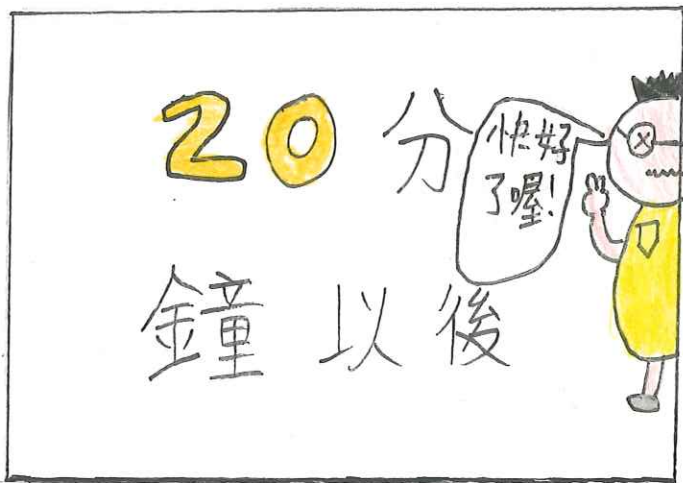 20分
鐘以後
快好
了喔!